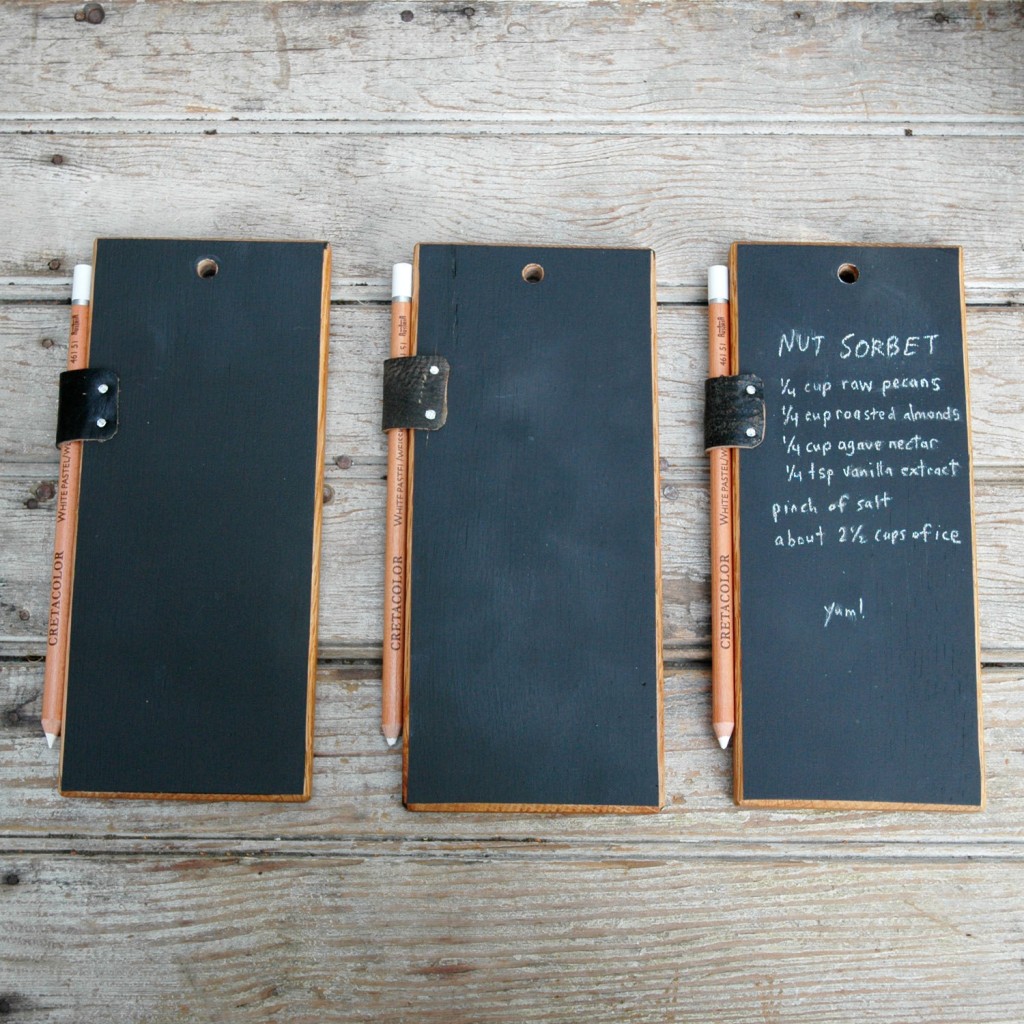 461 51
CRETACOLOR WHITE PASTEL/W
461 51
CRETACOLOR WHITE PASTEL/WEISS
461 51
CRETACOLOR WHITE PASTEL/W
NUT SORBET
¼ cup raw pecans
¼ cup roasted almonds
¼ cup agave nectar
¼ tsp vanilla extract
pinch of salt
about 2½ cups of ice
yum!